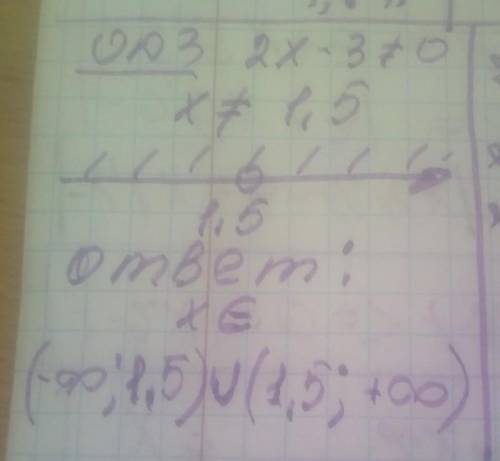 ОДЗ 2x - 3 ≠ 0
x ≠ 1,5
1,5
ответ:
x ∈
(-∞; 1,5) ∪ (1,5; +∞)